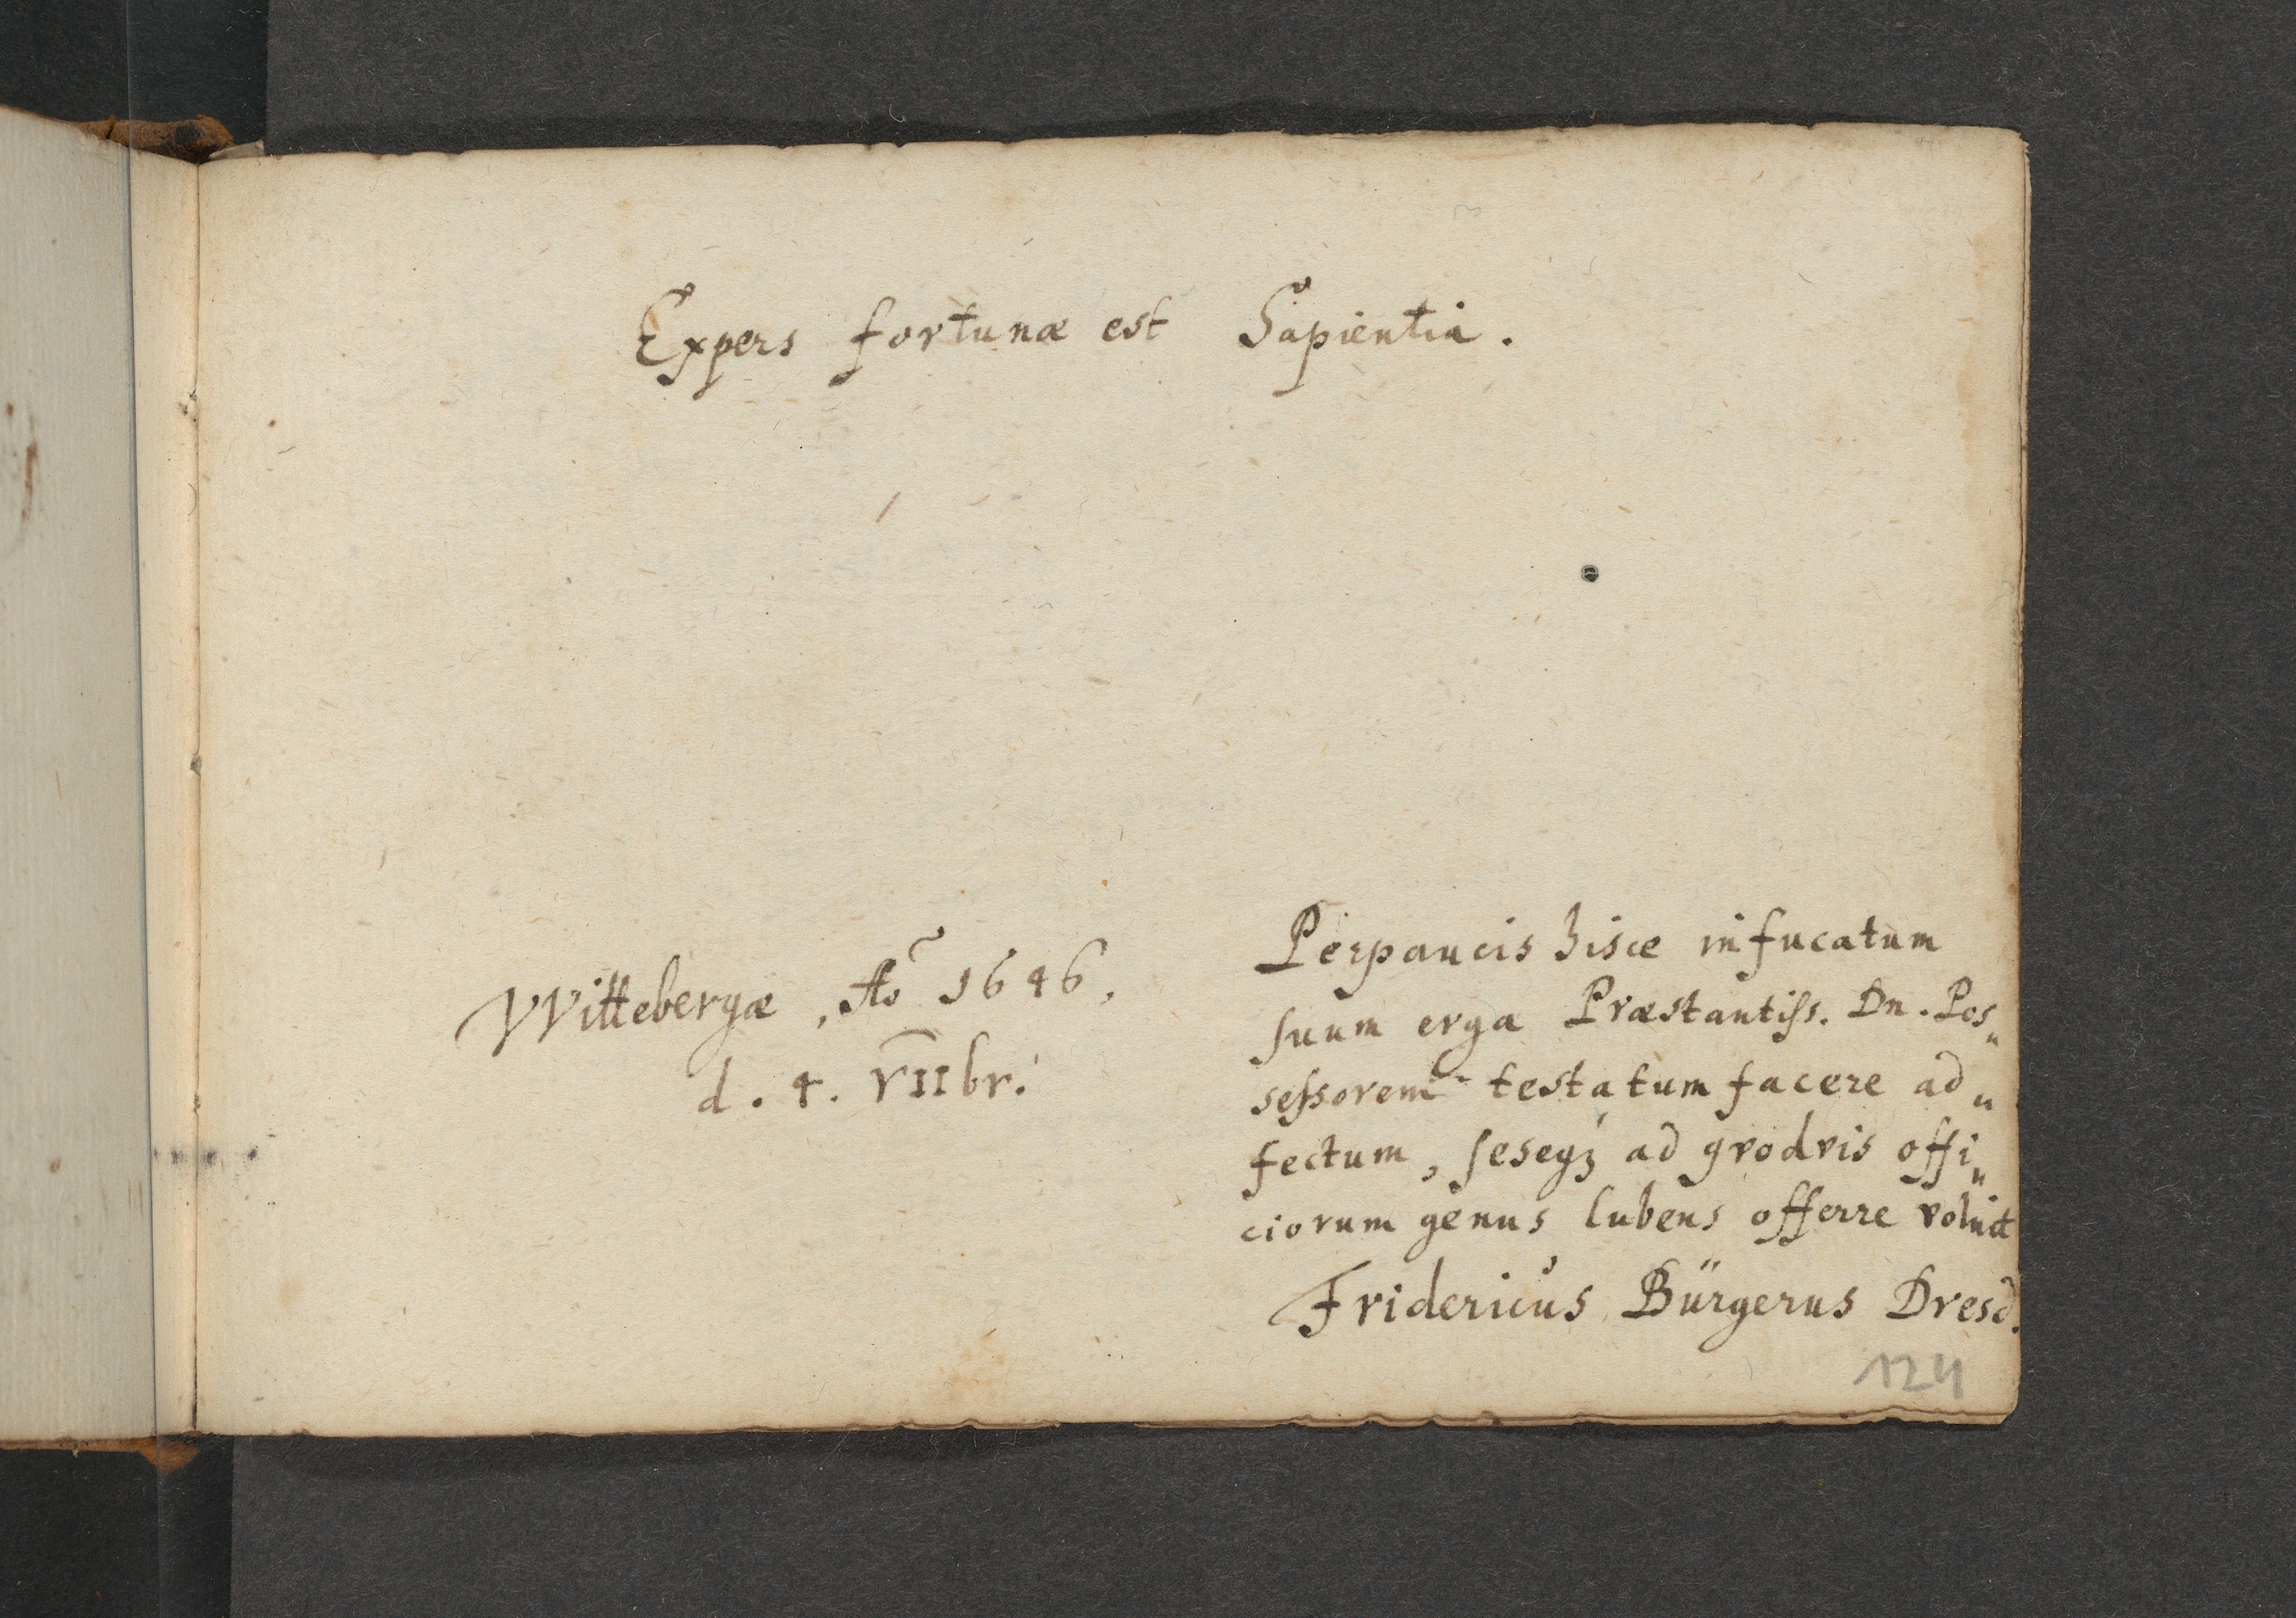 Expers fortunæ est Sapientia.
VVittebergæ, Ao 1646,
d. 4. VIIbr.
Perpaucis hisce infucatum
suum erga Præstantiss. Dn. Pos„
sessorem testatum facere ad„
fectum, seseq; ad qvodvis offi„
ciorum genus lubens offerre voluit
Fridericus Bürgerus Dresd.
124